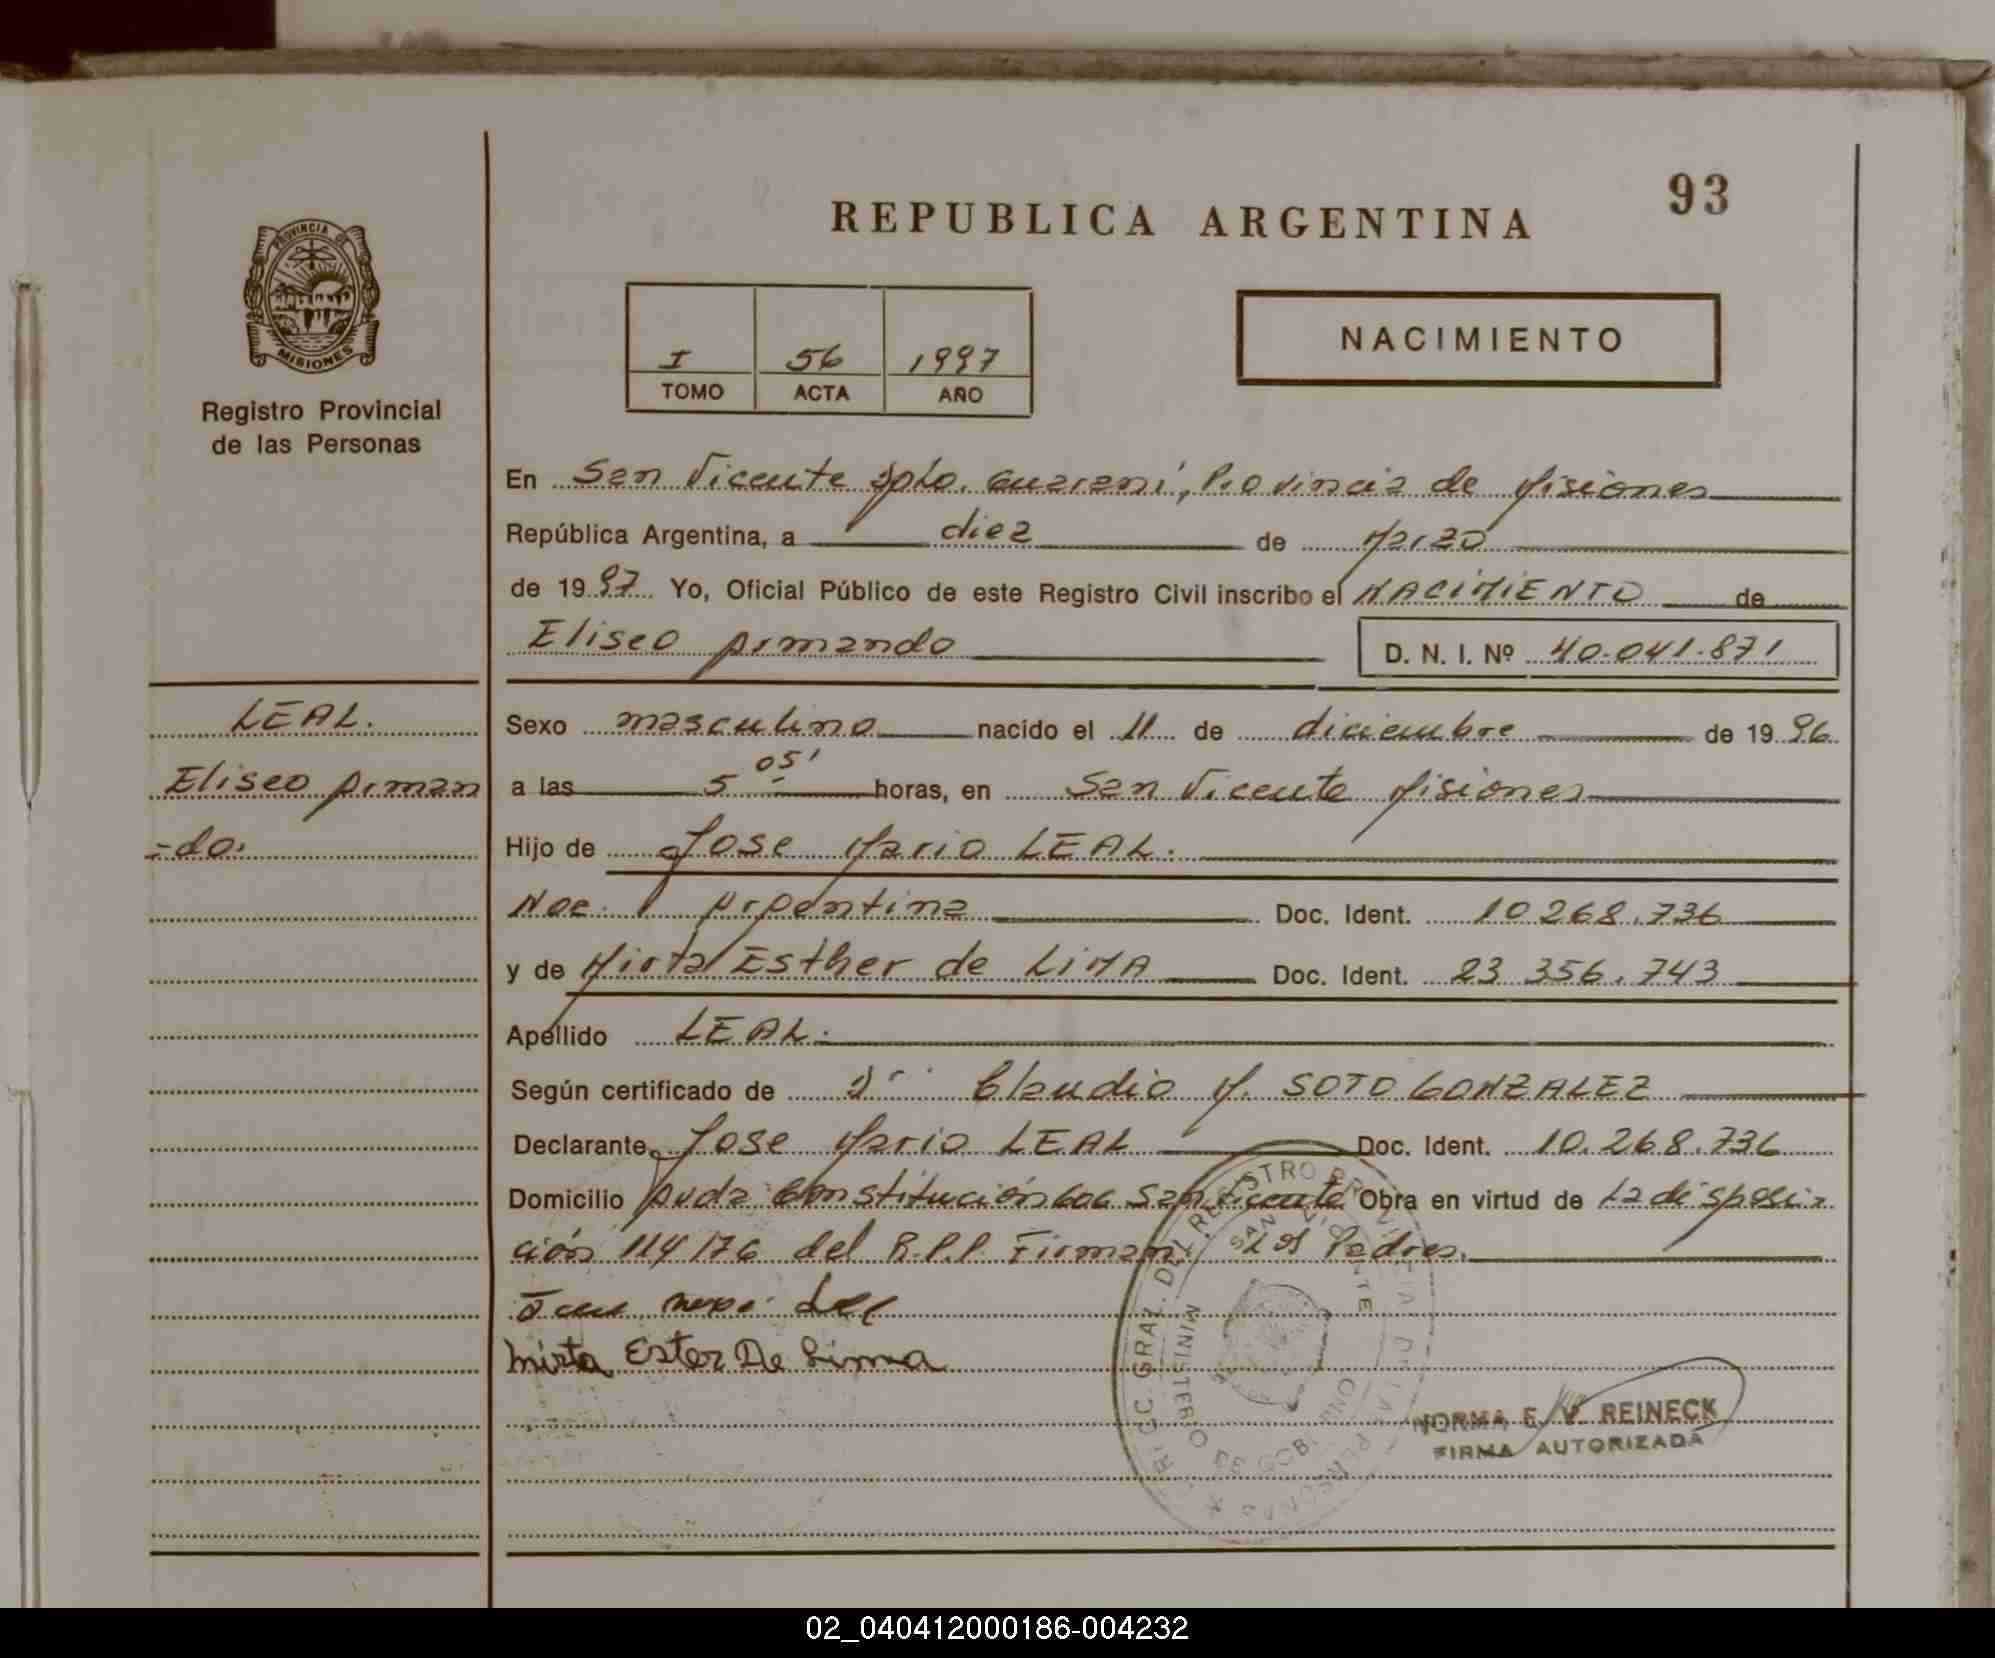 93
REPUBLICA ARGENTINA
PROVINCIA DE
MISIONES
Registro Provincial
de las Personas
I 56 1997
TOMO ACTA AÑO
NACIMIENTO
En San Vicente Dpto. Guarani, Provincia de Misiones
República Argentina, a diez de Marzo
de 1997 Yo, Oficial Público de este Registro Civil inscribo el NACIMIENTO de
Eliseo Armando D. N. I. Nº 40.041.871
LEAL.
Eliseo Arman
=do.
Sexo masculino nacido el 11 de diciembre de 1996
a las 5 05' horas, en San Vicente Misiones
Hijo de Jose Mario LEAL.
Nac. Argentina Doc. Ident. 10 268.736
y de Mirta Esther de LIMA Doc. Ident. 23 356.743
Apellido LEAL.
Según certificado de Claudio M. SOTO GONZALEZ
Declarante Jose Mario LEAL Doc. Ident. 10.268.736
Domicilio Avda Constitución San Vicente Obra en virtud de La disposi=
ción 114/76 del R.P.P. Firman Los Padres.
Mirta Ester De Lima
NORMA E. V. REINECK
FIRMA AUTORIZADA
DEL REGISTRO PROVINCIAL DE LAS PERSONAS
SAN VICENTE
MINISTERIO DE GOBIERNO
02_040412000186-004232